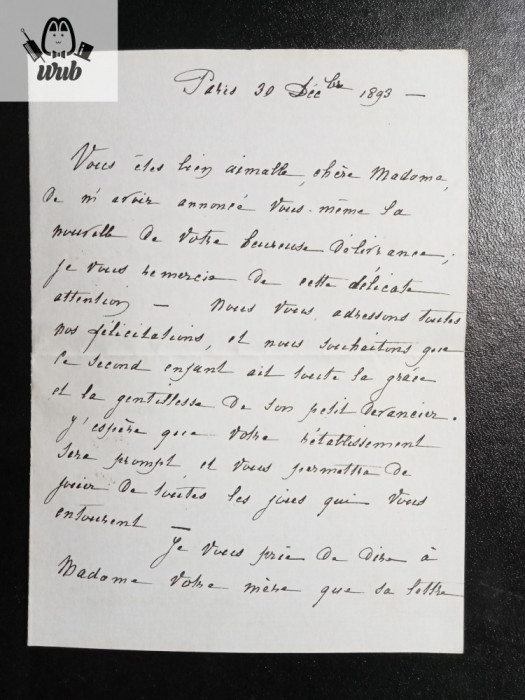 wub
Paris 30 Déc^bre 1893 —
Vous êtes bien aimable, chère Madame,
de m'avoir annoncé vous-même la
nouvelle de votre heureuse délivrance ;
je vous remercie de cette délicate
attention — nous vous adressons toutes
nos félicitations, et nous souhaitons que
ce second enfant ait toute la grâce
et la gentillesse de son petit devancier.
J'espère que votre rétablissement
sera prompt et vous permettra de
jouir de toutes les joies qui vous
entourent —
Je vous prie de dire à
Madame votre mère que sa lettre